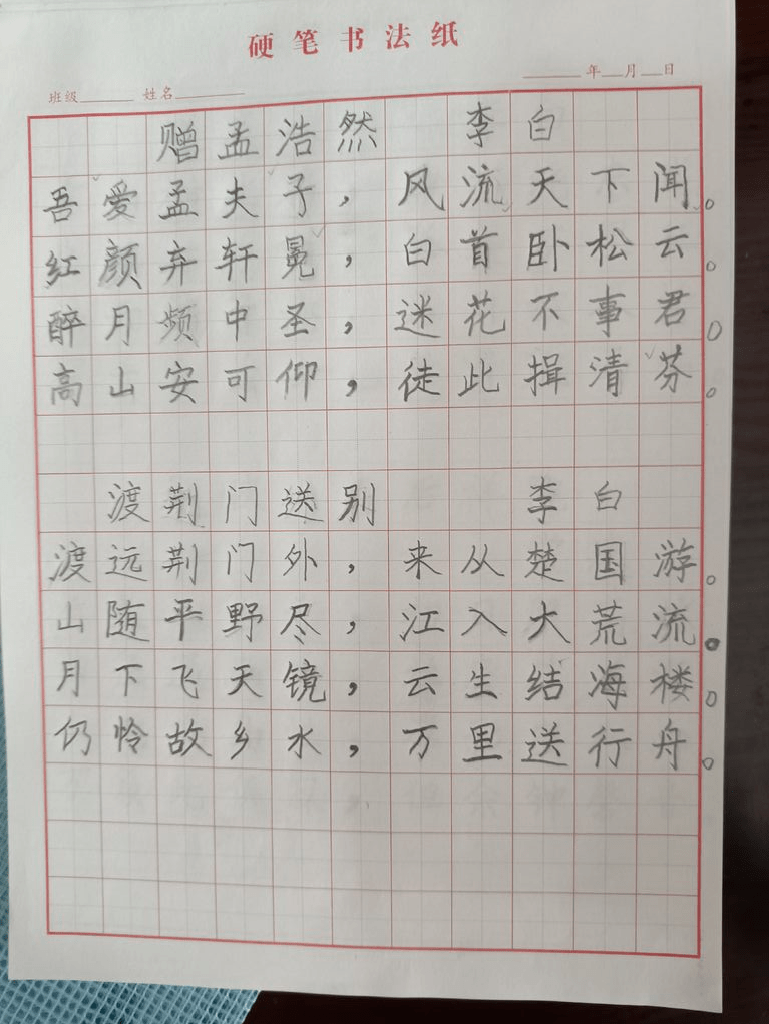 硬笔书法纸
班级 姓名 年 月 日
赠孟浩然 李白
吾爱孟夫子，风流天下闻。
红颜弃轩冕，白首卧松云。
醉月频中圣，迷花不事君。
高山安可仰，徒此揖清芬。
渡荆门送别 李白
渡远荆门外，来从楚国游。
山随平野尽，江入大荒流。
月下飞天镜，云生结海楼。
仍怜故乡水，万里送行舟。